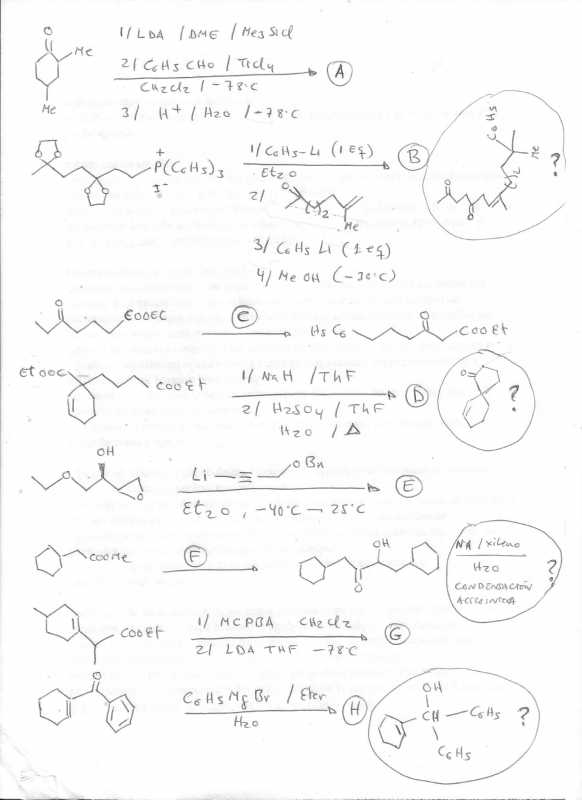 O
Me
Me
1/ LDA / DME / Me3SiCl
2/ C6H5CHO / TiCl4
CH2Cl2 / -78ºC
3/ H+ / H2O / -78ºC
A
O O
O O
+
P(C6H5)3
I-
1/ C6H5-Li (1 Eq)
Et2O
2/ O
( )2
Me
3/ C6H5 Li (1 eq)
4/ MeOH (-30ºC)
B
C6H5
Me
( )2
O
O
?
O
COOEC
C
H5C6
O
COOEt
Et OOC
COOEt
1/ NaH / THF
2/ H2SO4 / THF
H2O / Δ
D
O
?
OH
O
O
Li - ≡
OBn
Et2O, -40ºC → 25ºC
E
COOMe
F
OH
O
NA / xileno
H2O
CONDENSACIÓN
ACILOINICA
?
COOEt
1/ MCPBA CH2Cl2
2/ LDA THF -78ºC
G
O
C6H5MgBr / Eter
H2O
H
OH
CH - C6H5
C6H5
?